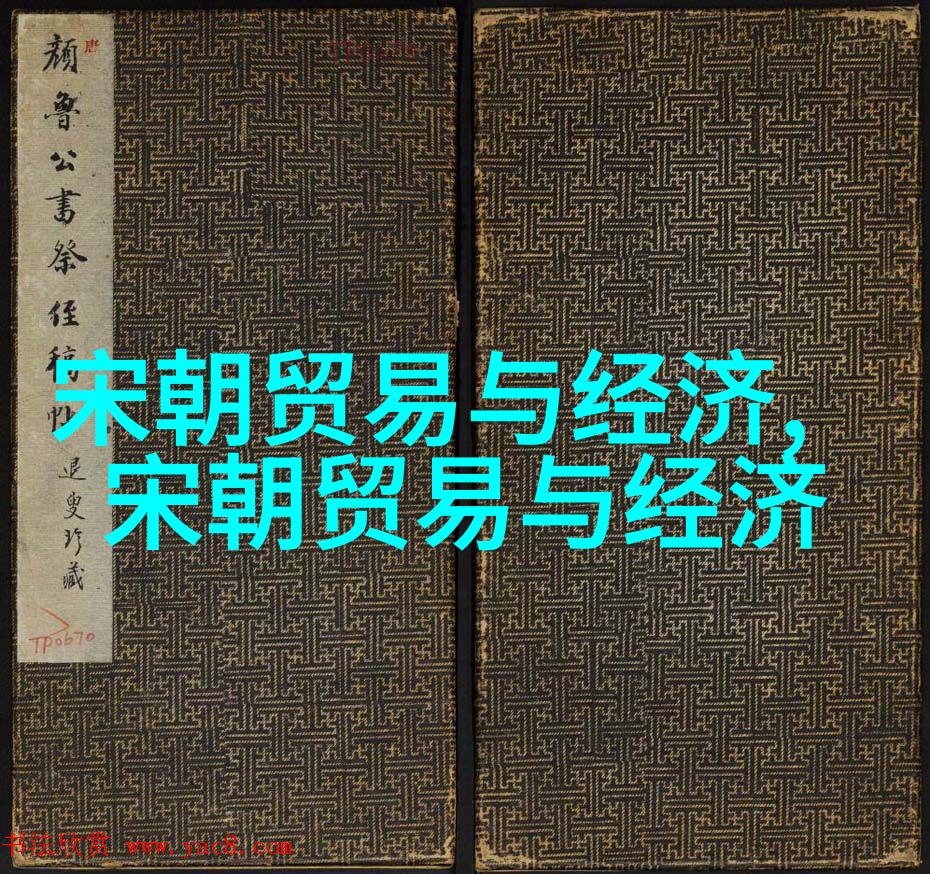 唐
颜鲁公书祭侄稿帖
退叟珍藏
TP0670
宋朝贸易与经济,
宋朝贸易与经济
书法欣赏 www.yac8.com